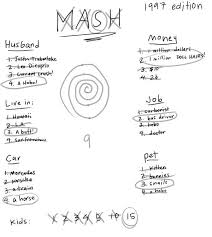 MASH
1997 edition
Husband
1. Justin Timberlake
2. Leo Dicaprio
3. Current crush!
4. A Hobo!
Money
1. 1 million dollars
2. 1 million
3. $10
4.
Live in:
1. Hawaii
2. LA
3. A butt!
4. San Francisco
Job
1.
2. bus driver
3. hobo
4. doctor
9
Car
1. Mercedes
2. Porsche
3. a train
4. a horse
Pet
1. Kitten
2. bunnies
3. snails
4. a hobo
Kids:
1 2 3 4 5 10 15